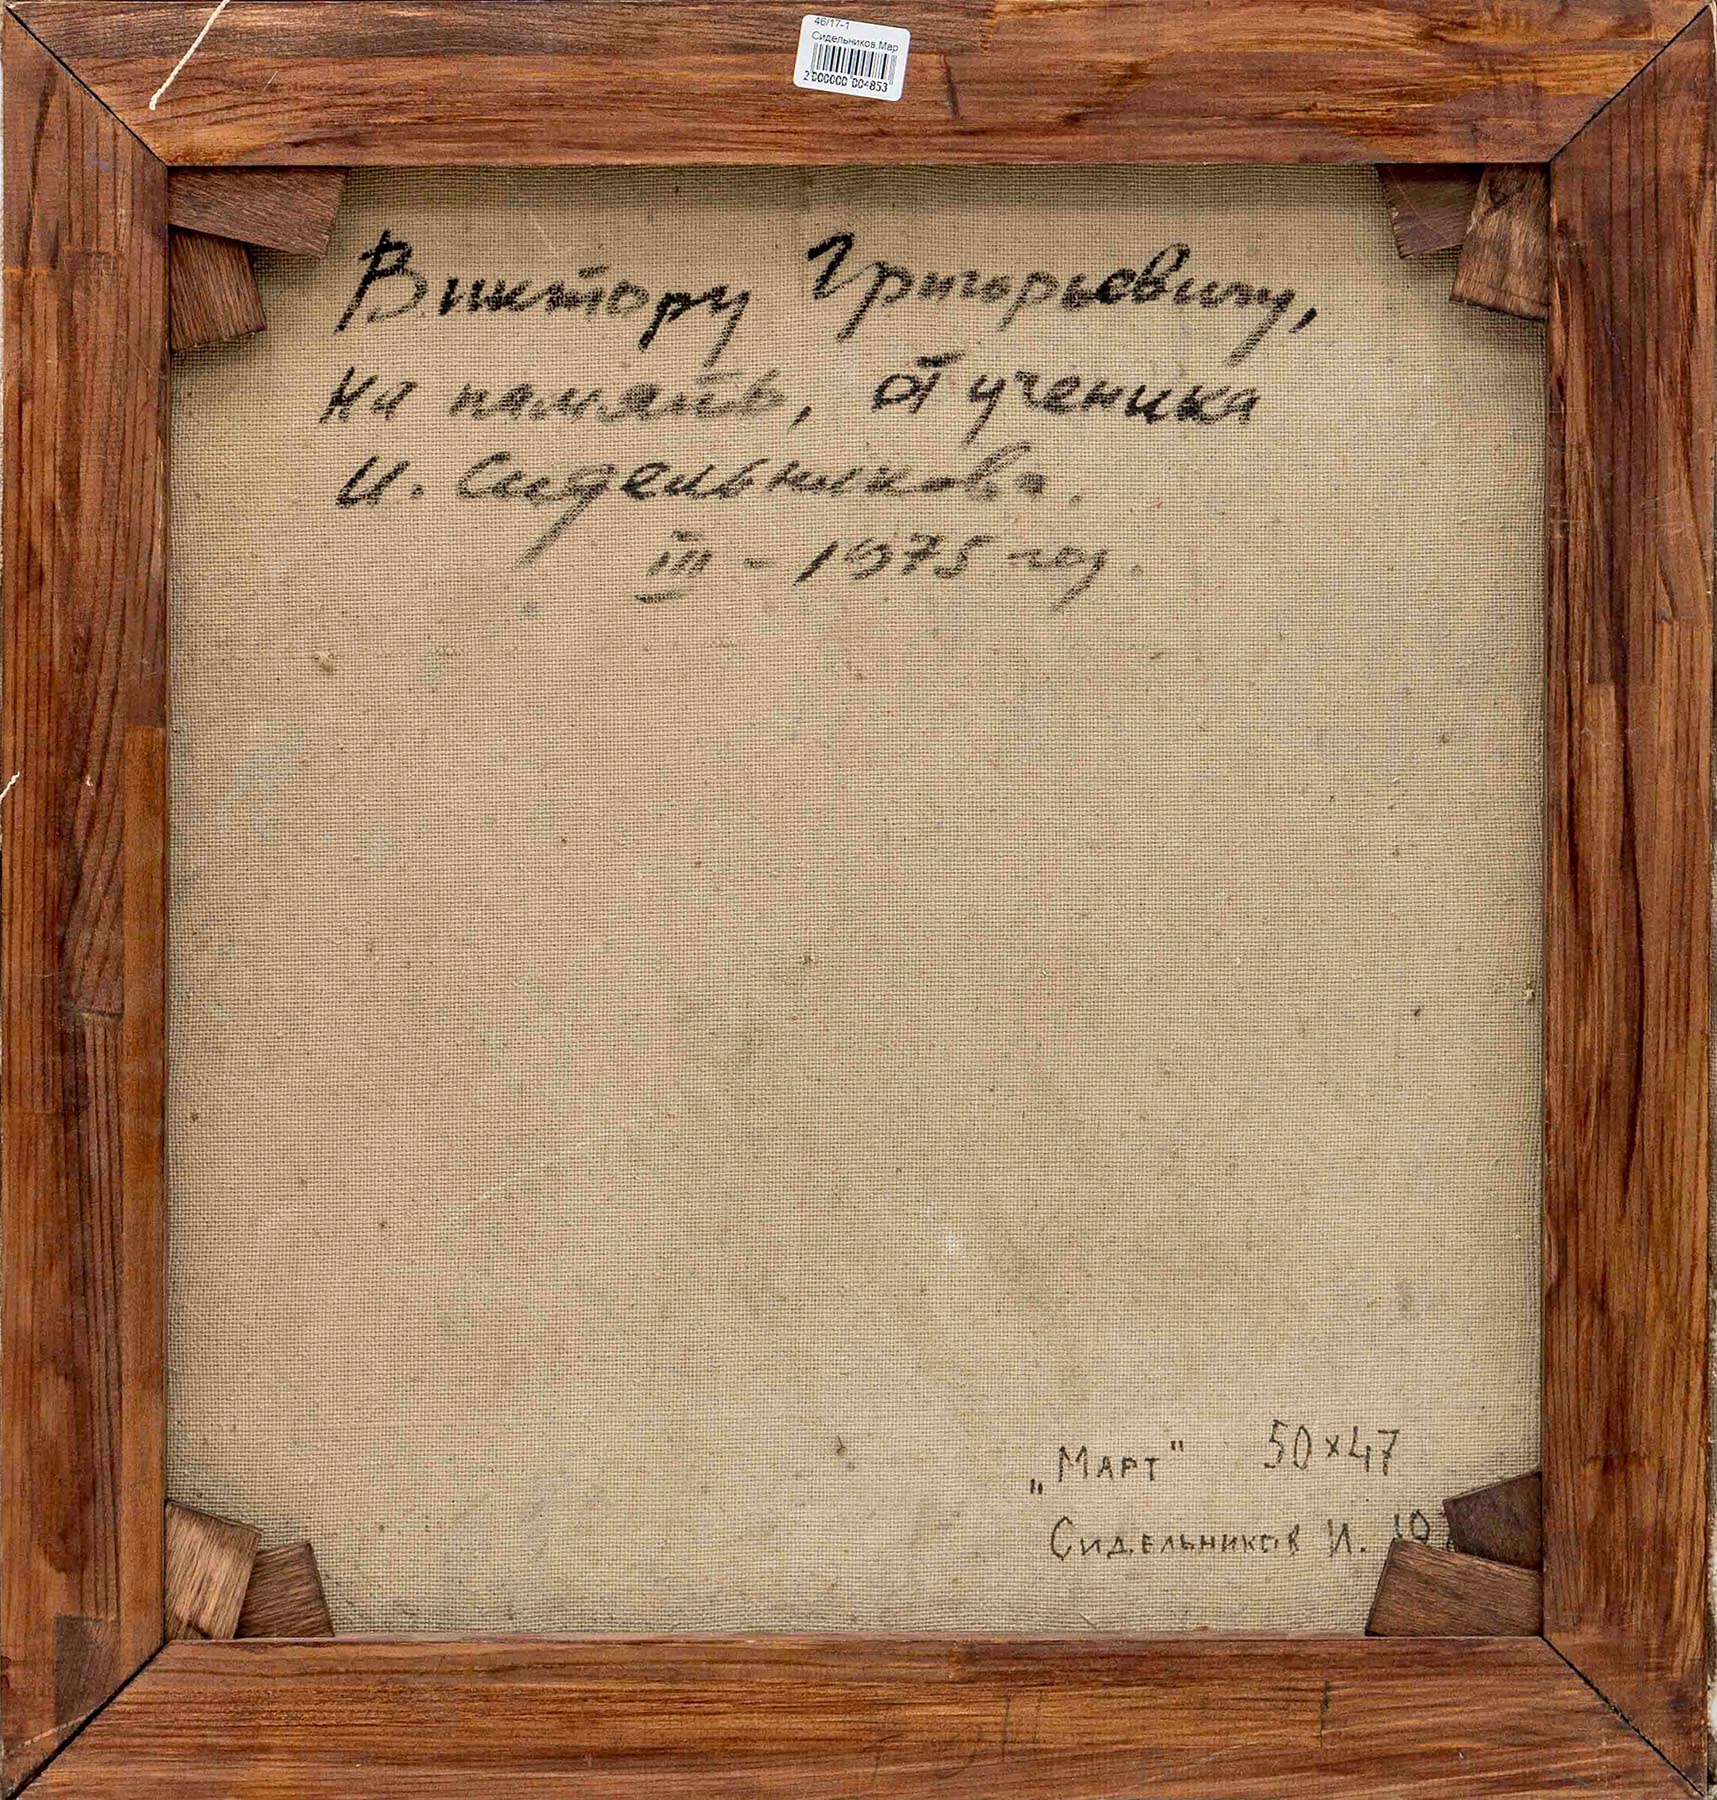 46/17-1
Сидельников.Мар
2 000000 004853
Виктору Григорьевичу,
на память, от ученика
И. Сидельникова.
III - 1975 год.
„Март" 50×47
Сидельников И. 19